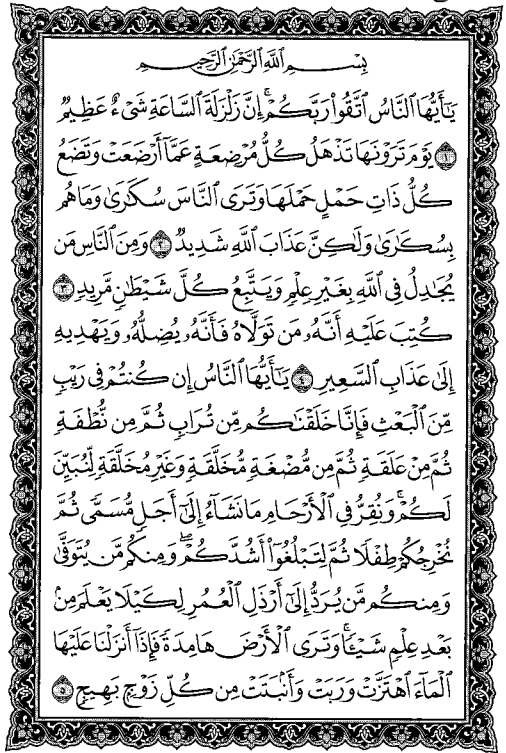 بِسْمِ ٱللَّهِ ٱلرَّحْمَٰنِ ٱلرَّحِيمِ
يَـٰٓأَيُّهَا ٱلنَّاسُ ٱتَّقُوا۟ رَبَّكُمْ ۚ إِنَّ زَلْزَلَةَ ٱلسَّاعَةِ شَىْءٌ عَظِيمٌ
﴿١﴾ يَوْمَ تَرَوْنَهَا تَذْهَلُ كُلُّ مُرْضِعَةٍ عَمَّآ أَرْضَعَتْ وَتَضَعُ
كُلُّ ذَاتِ حَمْلٍ حَمْلَهَا وَتَرَى ٱلنَّاسَ سُكَـٰرَىٰ وَمَا هُم
بِسُكَـٰرَىٰ وَلَـٰكِنَّ عَذَابَ ٱللَّهِ شَدِيدٌ ﴿٢﴾ وَمِنَ ٱلنَّاسِ مَن
يُجَـٰدِلُ فِى ٱللَّهِ بِغَيْرِ عِلْمٍ وَيَتَّبِعُ كُلَّ شَيْطَـٰنٍ مَّرِيدٍ ﴿٣﴾
كُتِبَ عَلَيْهِ أَنَّهُۥ مَن تَوَلَّاهُ فَأَنَّهُۥ يُضِلُّهُۥ وَيَهْدِيهِ
إِلَىٰ عَذَابِ ٱلسَّعِيرِ ﴿٤﴾ يَـٰٓأَيُّهَا ٱلنَّاسُ إِن كُنتُمْ فِى رَيْبٍ
مِّنَ ٱلْبَعْثِ فَإِنَّا خَلَقْنَـٰكُم مِّن تُرَابٍ ثُمَّ مِن نُّطْفَةٍ
ثُمَّ مِنْ عَلَقَةٍ ثُمَّ مِن مُّضْغَةٍ مُّخَلَّقَةٍ وَغَيْرِ مُخَلَّقَةٍ لِّنُبَيِّنَ
لَكُمْ ۚ وَنُقِرُّ فِى ٱلْأَرْحَامِ مَا نَشَآءُ إِلَىٰٓ أَجَلٍ مُّسَمًّى ثُمَّ
نُخْرِجُكُمْ طِفْلًا ثُمَّ لِتَبْلُغُوٓا۟ أَشُدَّكُمْ ۖ وَمِنكُم مَّن يُتَوَفَّىٰ
وَمِنكُم مَّن يُرَدُّ إِلَىٰٓ أَرْذَلِ ٱلْعُمُرِ لِكَيْلَا يَعْلَمَ مِنۢ
بَعْدِ عِلْمٍ شَيْـًٔا ۚ وَتَرَى ٱلْأَرْضَ هَامِدَةً فَإِذَآ أَنزَلْنَا عَلَيْهَا
ٱلْمَآءَ ٱهْتَزَّتْ وَرَبَتْ وَأَنۢبَتَتْ مِن كُلِّ زَوْجٍۭ بَهِيجٍ ﴿٥﴾